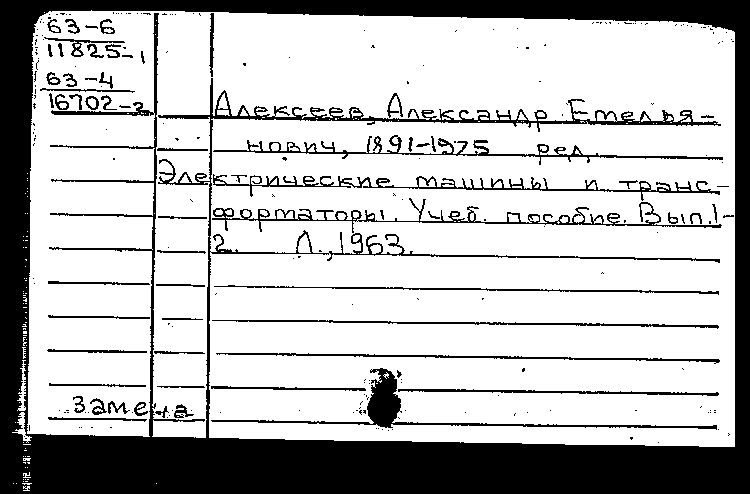 63-6
11825-1
63-4
16702-2
Алексеев, Александр Емелья-
нович, 1891-1975 ред.
Электрические машины и транс-
форматоры. Учеб. пособие. Вып.1-
2. Л., 1963.
замена